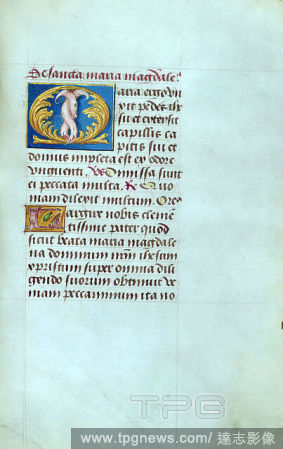 De sancta maria magdale.
Maria ergo vn
xit pedes ihu
sui et extersit
capillis ca
pitis sui et
domus impleta est ex odore
vnguenti. V. Dimissa sunt
ei peccata multa. R. Quo
niam dilexit multum. Oreo
Largire nobis clemen
tissime pater quod
sicut beata maria magdale
na dominum nrm ihesum
xpristum super omnia dili
gendo suorum obtinuit ve
niam peccaminum ita no
TPG
www.tpgnews.com/ 達志影像